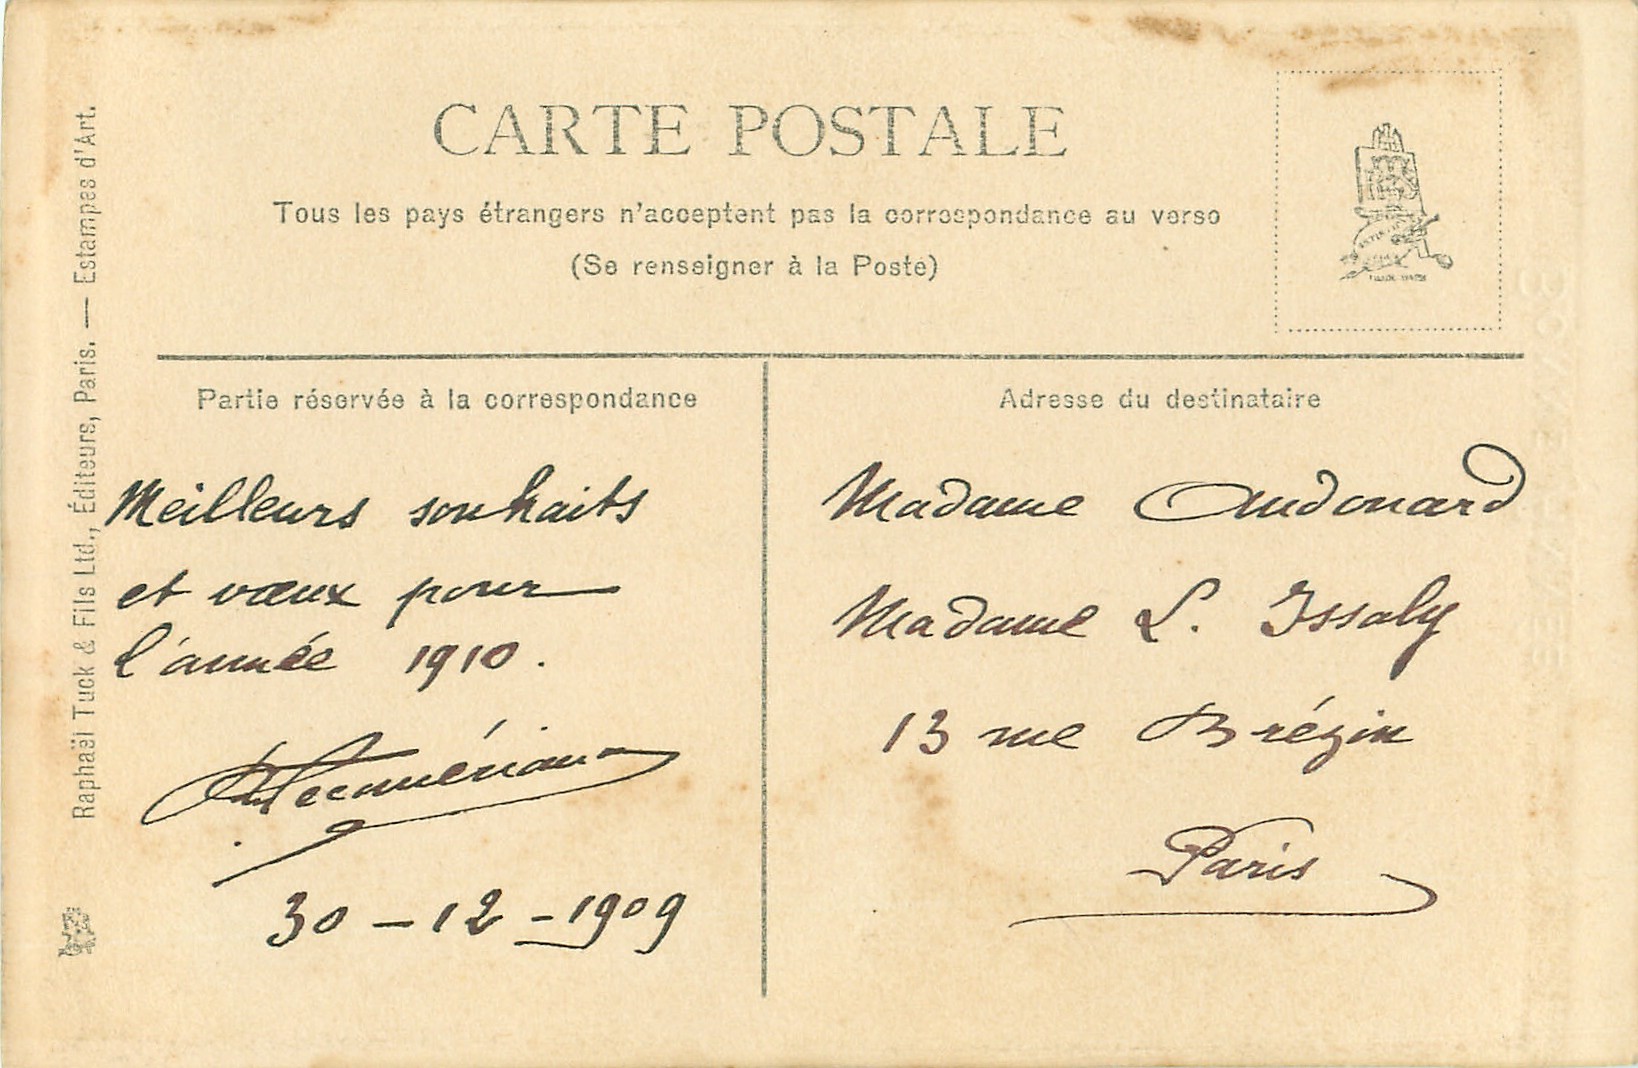 CARTE POSTALE
Tous les pays étrangers n'acceptent pas la correspondance au verso
(Se renseigner à la Poste)
Raphaël Tuck & Fils Ltd., Éditeurs, Paris. — Estampes d'Art.
Partie réservée à la correspondance
Meilleurs souhaits
et vœux pour
l'année 1910.
30 - 12 - 1909
Adresse du destinataire
Madame Audouard
Madame L. Issaly
13 rue Brézin
Paris